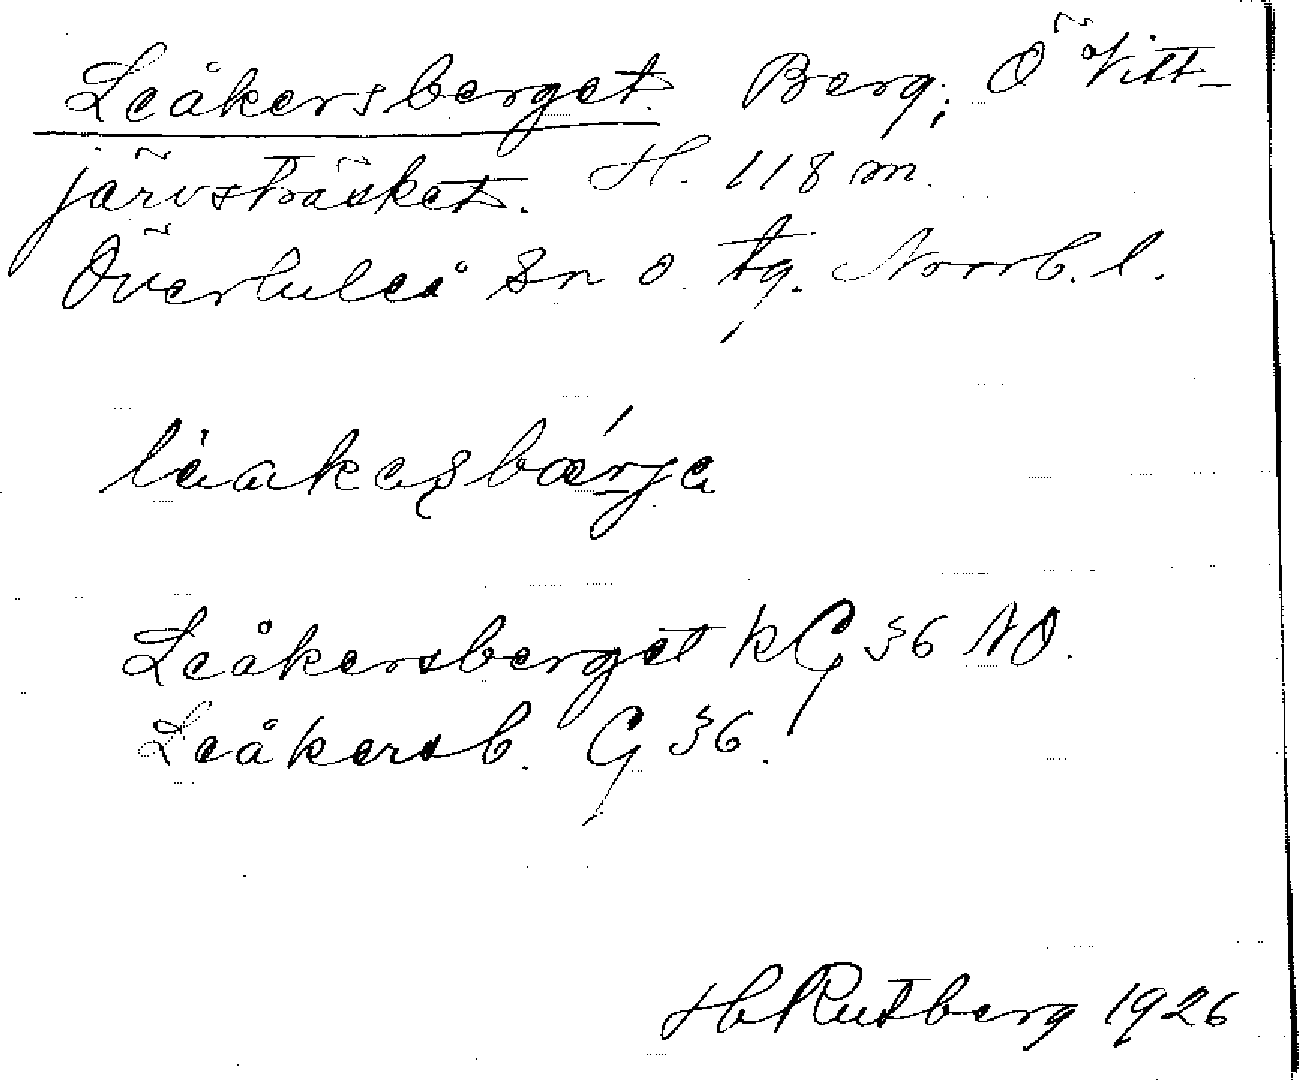 Leåkersberget. Berg; Ö Vitt-
järvsträsket. H. 118 m.
Överluleå Sn o. tg. Norrb. l.
Leåkersberget kG 36 NO.
Leåkersb. G 36.
H Rutberg 1926